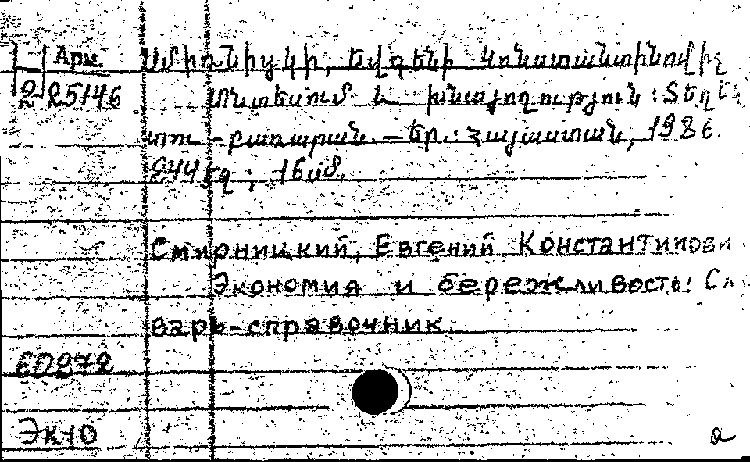 Арм. Սմիռնիցկի, Եվգենի Կոնստանտինովիչ
2 25146 Տնտեսում և խնայողություն: Տեղե
տու-բառարան.—Եր.: Հայաստան, 198
244 էջ; 16սմ.
Смирницкий, Евгений Константинови
Экономия и бережливость: Сл
варь-справочник.
ED272
Эк+О
а